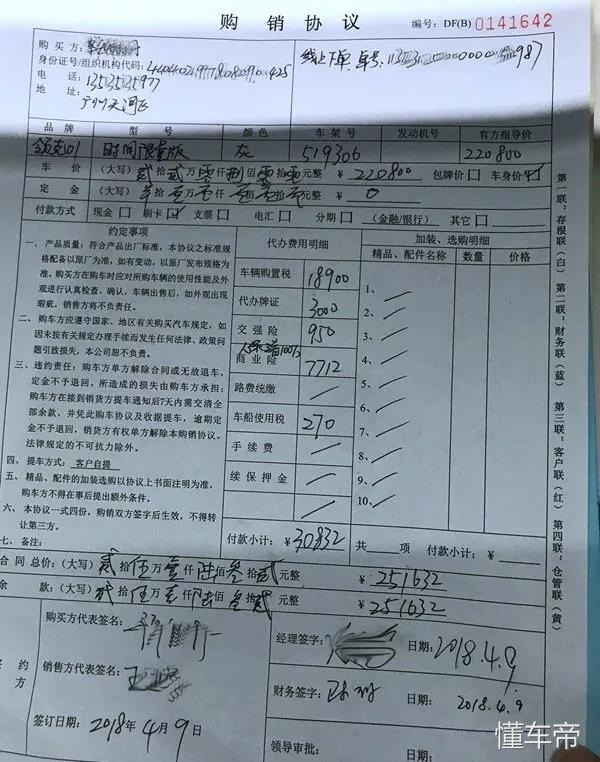 购 销 协 议
编号: DF(B) 0141642
购 买 方:
身份证号/组织机构代码:
电 话: 13535353977
地 址: 广州天河区
线上下单 单号: 987
品 牌 型 号 颜 色 车 架 号 发动机号 官方指导价
领克01 时间限量版 灰 519306 220800
车 价 (大写) 贰 拾 贰 万 零 仟 捌 佰 零 拾 零 元整 ¥ 220800 包牌价□ 车身价
定 金 (大写) 拾 万 仟 佰 拾 元整 ¥ 0
付款方式 现金□ 刷卡☑ 支票□ 电汇□ 分期□ (金融/银行) 其它□
约定事项
一、产品质量:符合产品出厂标准,本协议之标准规
格配备以原厂为准,如有变动,以原厂发布规格为
准。购买方在购车时应对所购车辆的使用性能及外
观进行认真检查、确认,车辆出售后,如外观出现
瑕疵,销售方将不负责任。
二、购车方应遵守国家、地区有关购买汽车规定,如
因未按有关规定办理手续而发生任何法律、政策问
题引致损失,本公司恕不负责。
三、违约责任:购车方单方解除合同或无故退车,
定金不予退回,所造成的损失由购车方承担;
购车方在接到销货方提车通知后7天内需交清全
部余款,并凭此购车协议及收据提车,逾期定
金不予退回,销货方有权单方解除本购销协议。
法律规定的不可抗力除外。
四、提车方式: 客户自提
五、精品的加装选购以协议上书面注明为准,
购车方不得在事后提出额外条件。
六、本协议一式四份,购销双方签字后生效,不得转
让第三方。
七、备注:
代办费用明细
车辆购置税 18900
代办牌证 3000
交 强 险 950
人保 100%
商 业 险 7712
路费统缴
车船使用税 270
手 续 费
续 保 押 金
付款小计: ¥ 30832
加装、选购明细
精品、配件名称 数量 价格
1、
2、
3、
4、
5、
6、
7、
8、
9、
10、
共 项 付款小计: ¥
合 同 总价: (大写) 贰 拾 伍 万 壹 仟 陆 佰 叁 拾 贰 元整 ¥ 251632
余 款: (大写) 贰 拾 伍 万 壹 仟 陆 佰 叁 拾 贰 元整 ¥ 251632
签 约 方
购买方代表签名:
销售方代表签名:
签订日期: 2018年4月9日
经理签字: 日期: 2018.4.9
财务签字: 日期: 2018.4.9
领导审批: 日期:
第一联:存根联(白) 第二联:财务联(蓝) 第三联:客户联(红) 第四联:仓管联(黄)
懂车帝